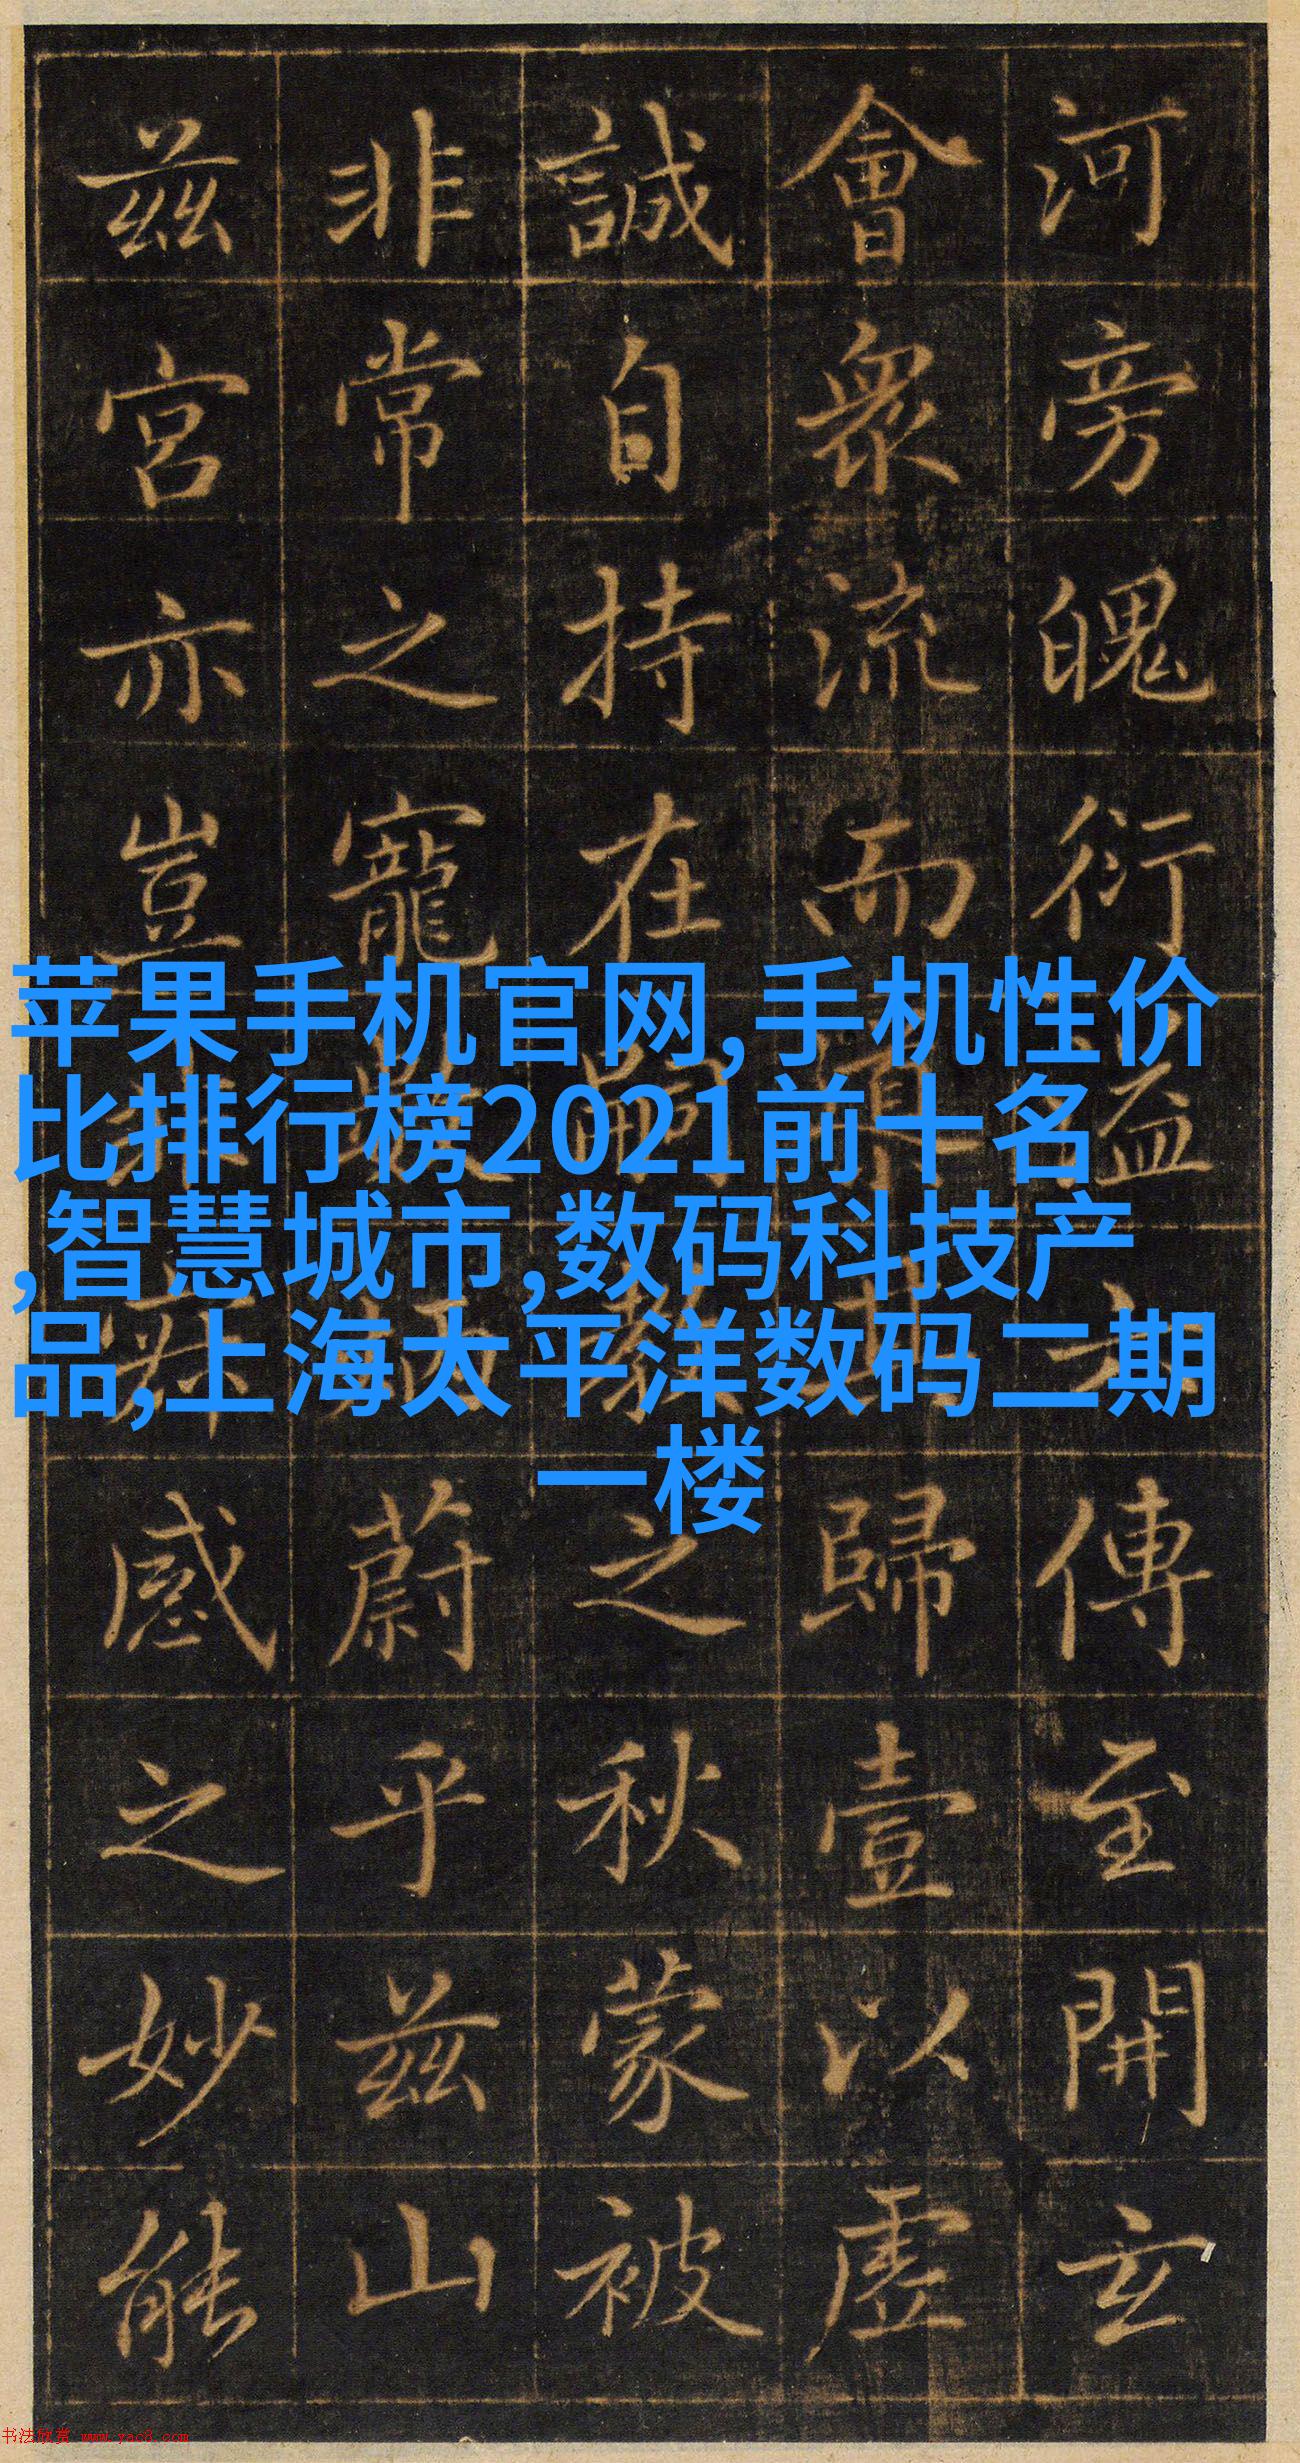 河旁魄衍益傳至開玄
會衆流而歸壹以虛
誠自持在嗣教之秋蒙被
非常之寵蔚乎兹山
兹宮亦豈感之妙能
苹果手机官网,手机性价
比排行榜2021前十名
,智慧城市,数码科技产
品,上海太平洋数码二期
一楼
书法欣赏 www.yac8.com